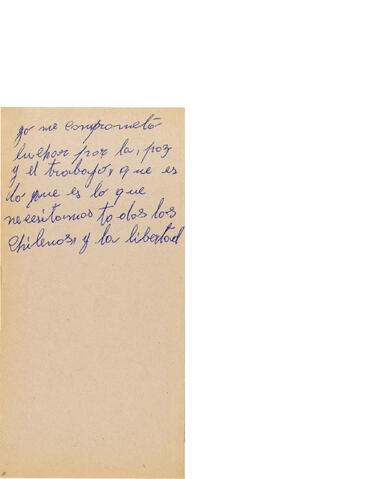 yo me comprometo
luchar por la, paz
y el trabajo, que es
lo que es lo que
necesitamos todos los
chilenos, y la libertad